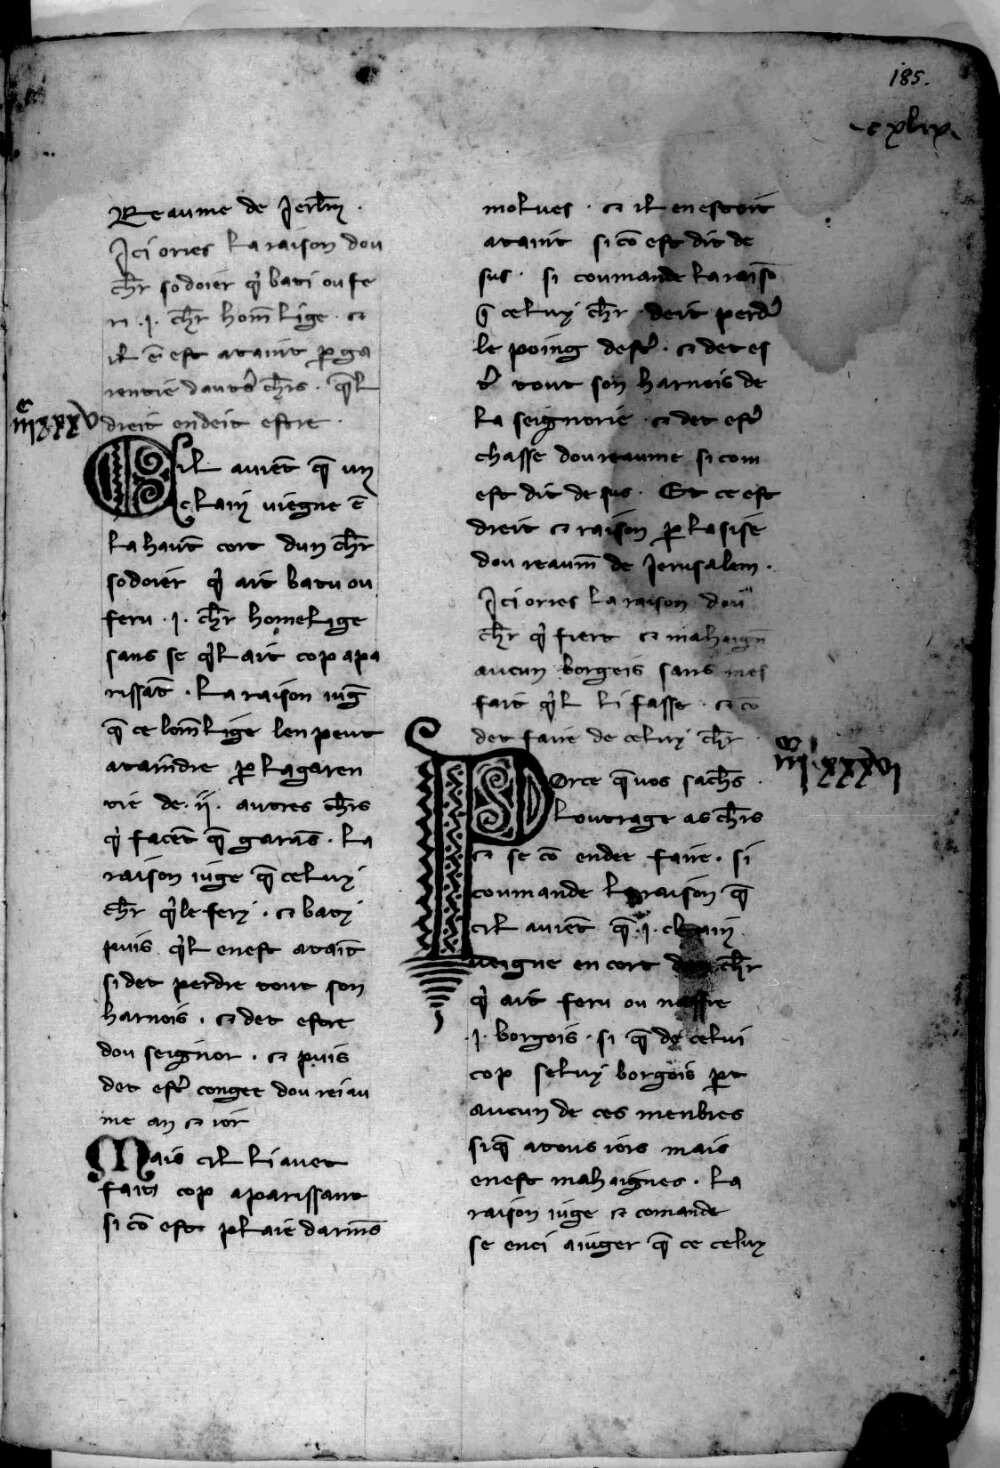 185.
c xlix
Reaume de Jerl̄m .
Ici ories la raison dou
ch̄r sodoier q̍ bati ou fe
ri .i. ch̄r hom̄ lige . ⁊
il ē est ataint ꝑ ga
rentie dautr̄ ch̄rs . q̄l
dreit endeit estre .
iiiͨxxxv
Cil avient q̄ un
clain viegne ē
la haut̄ cort dun ch̄r
sodoier q̍ ait batu ou
feru .i. ch̄r home lige
sans se q̍l ait cop apa
rissāt . la raison iuḡ
q̄ ce lom̄ lige len peut
ataindre ꝑ la garen
tie de .ii. autres ch̄rs
q̍ facēt q̄ garās . la
raison iuge q̄ celuy
ch̄r q̍ le fery . ⁊ baty
puis q̍l enest ataīt
si det perdre tout son
harnois . ⁊ det estre
dou seignor . ⁊ puis
det estr̄ conget dou reiau
me an ⁊ ior
Mais cil li avet
fait cop aparissant
si cō est plaie darmēs
molues . ⁊ il en estoit
ataint si cō est dit de
sus . si coumande la raisō
q̄ celuy ch̄r deit perdr̄
le poing destr̄ . ⁊ det es
tr̄ tout son harnois de
la seignorie . ⁊ det estr̄
chasse dou reaume si com
est dit de sus . Et ce est
dreit ⁊ raison ꝑ lasise
dou reaum̄ de Jerusalem .
Ici ories la raison dou
ch̄r q̍ fiert ⁊ mahaign̄
aucun borgeis sans mes
fait q̍l li fasse . ⁊ cō
det faire de celuy ch̄r
iiiͨxxxvi
Porce q̄ vos sachēs .
loutrage as ch̄rs
⁊ se cō endet faire . si
coumande la raison q̄
cil avient q̄ .i. clain
veigne en cort dun ch̄r
q̍ ait feru ou naffre
.i. borgois . si q̄ de celui
cop seluy borgois ꝑt
aucun de ces menbres
si q̄ a tous iors mais
enest mahaignes . la
raison iuge ⁊ comande
se enci a iuger q̄ ce celuy